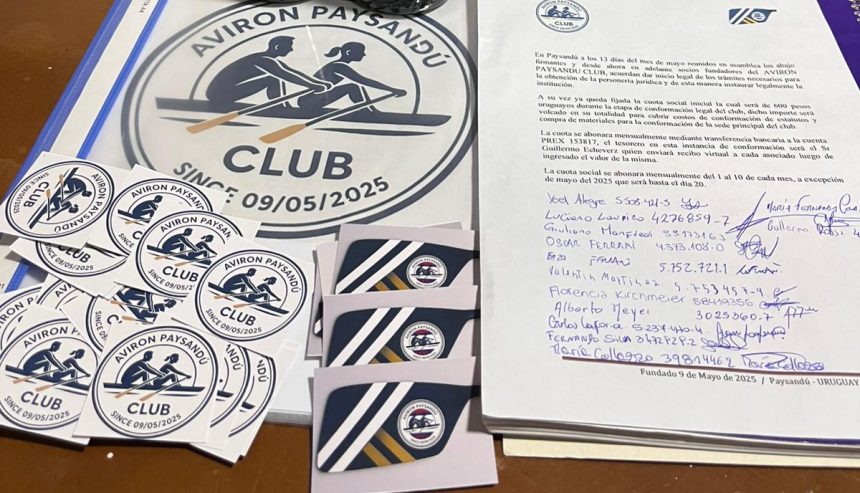 AVIRON PAYSANDÚ
CLUB
SINCE 09/05/2025
AVIRON PAYSANDÚ
CLUB
SINCE 09/05/2025
AVIRON PAYSANDÚ
CLUB
SINCE 09/05/2025
AVIRON PAYSANDÚ
CLUB
SINCE 09/05/2025
AVIRON PAYSANDÚ
CLUB
SINCE 09/05/2025
AVIRON PAYSANDÚ
AVIRON PAYSANDÚ
AVIRON PAYSANDÚ
En Paysandú a los 13 días del mes de mayo reunidos en asamblea los abajo
firmantes y desde ahora en adelante socios fundadores del AVIRON
PAYSANDU CLUB, acuerdan dar inicio legal de los trámites necesarios para
la obtención de la personería jurídica y de esta manera instaurar legalmente la
institución.
A su vez ya queda fijada la cuota social inicial la cual será de 600 pesos
uruguayos durante la etapa de conformación legal del club, dicho importe será
volcado en su totalidad para cubrir costos de conformación de estatutos y
compra de materiales para la conformación de la sede principal del club.
La cuota se abonara mensualmente mediante transferencia bancaria a la cuenta
PREX 153817, el tesorero en esta instancia de conformación será el Sr
Guillermo Echeverz quien enviará recibo virtual a cada asociado luego de
ingresado el valor de la misma.
La cuota social se abonara mensualmente del 1 al 10 de cada mes, a excepción
de mayo del 2025 que será hasta el día 20.
Yoel Alegre
Luciano 4276859-7
Giuliano Manfredi
OSCAR FERRARI 4.373.108-0
FERRARI 5.752.721.1
Valentin Martinez
Florencia Kirchmeier 58419356
Alberto Meyer 3025360.7
Carlos
FERNANDO SILVA
María Collazo 39814462
MARÍA FERNANDA
Guillermo
Fundado 9 de Mayo de 2025 / Paysandú - URUGUAY